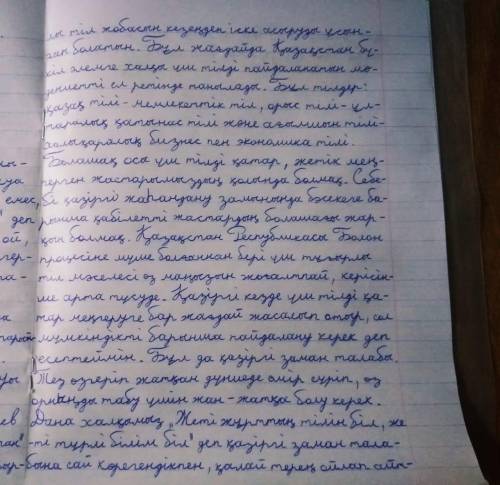 лы тіл жобасын кезеңдеп іске асыруды ұсын-
ған болатын. Бұл жағдайда Қазақстан бү-
кіл әлемге халқы үш тілді пайдаланатын мә-
дениетті ел ретінде танылады. Бұл тілдер:
қазақ тілі - мемлекеттік тіл, орыс тілі - ұл-
таралық қатынас тілі және ағылшын тілі -
халықаралық бизнес пен экономика тілі.
Болашақ оса үш тілді қатар, жетік мең-
герген жастарымыздың қолында болмақ. Себе-
бі қазіргі жаһандану заманында бәсекеге ба-
рынша қабілетті жастардың болашағы жар-
қын болмақ. Қазақстан Республикасы Болон
процесіне мүше болғаннан бері үш тұғырлы
тіл мәселесі өз маңызын жоғалтпай, керісін-
ше арта түсуде. Қазіргі кезде үш тілді қа-
тар меңгеруге бар жағдай жасалып отыр, сол
мүмкіндікті барынша пайдалану керек деп
есептеймін. Бұл да қазіргі заман талабы.
Тез өзгеріп жатқан дүниеде өмір сүріп, өз
орныңды табу үшін жан-жақты болу керек.
Дана халқымыз "Жеті жұрттың тілін біл, же-
ті түрлі білім біл" деп қазіргі заман тала-
бына сай көрегендікпен, қалай терең ойлап айт-
емес,
деп
ой,
гер-
та-